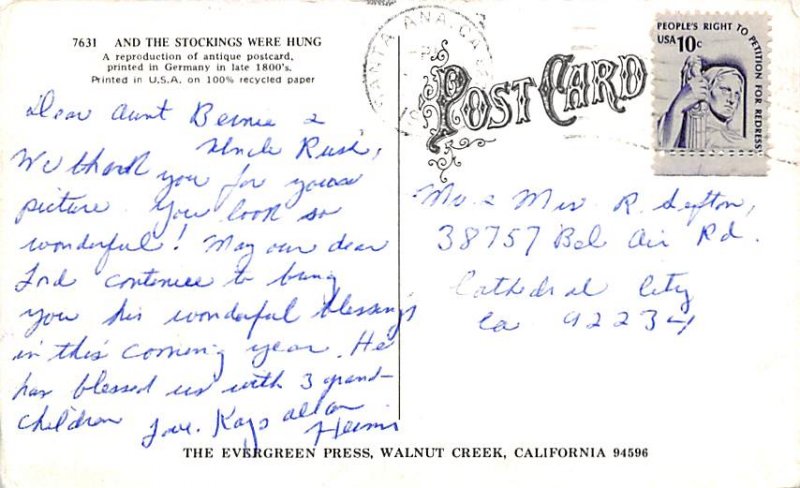 7631 AND THE STOCKINGS WERE HUNG
A reproduction of antique postcard,
printed in Germany in late 1800's.
Printed in U.S.A. on 100% recycled paper
Dear Aunt Bernie &
Uncle Russ,
We thank you for your
picture. You look so
wonderful! May our dear
Lord continue to bring
you his wonderful blessings
in this coming year. He
has blessed us with 3 grand-
children Love. Kays
POST CARD
SANTA ANA, CA
PEOPLE'S RIGHT TO PETITION FOR REDRESS
USA 10c
Mr. & Mrs. R. Sefton,
38757 Bel Air Rd.
Cathedral City
Ca 92234
THE EVERGREEN PRESS, WALNUT CREEK, CALIFORNIA 94596